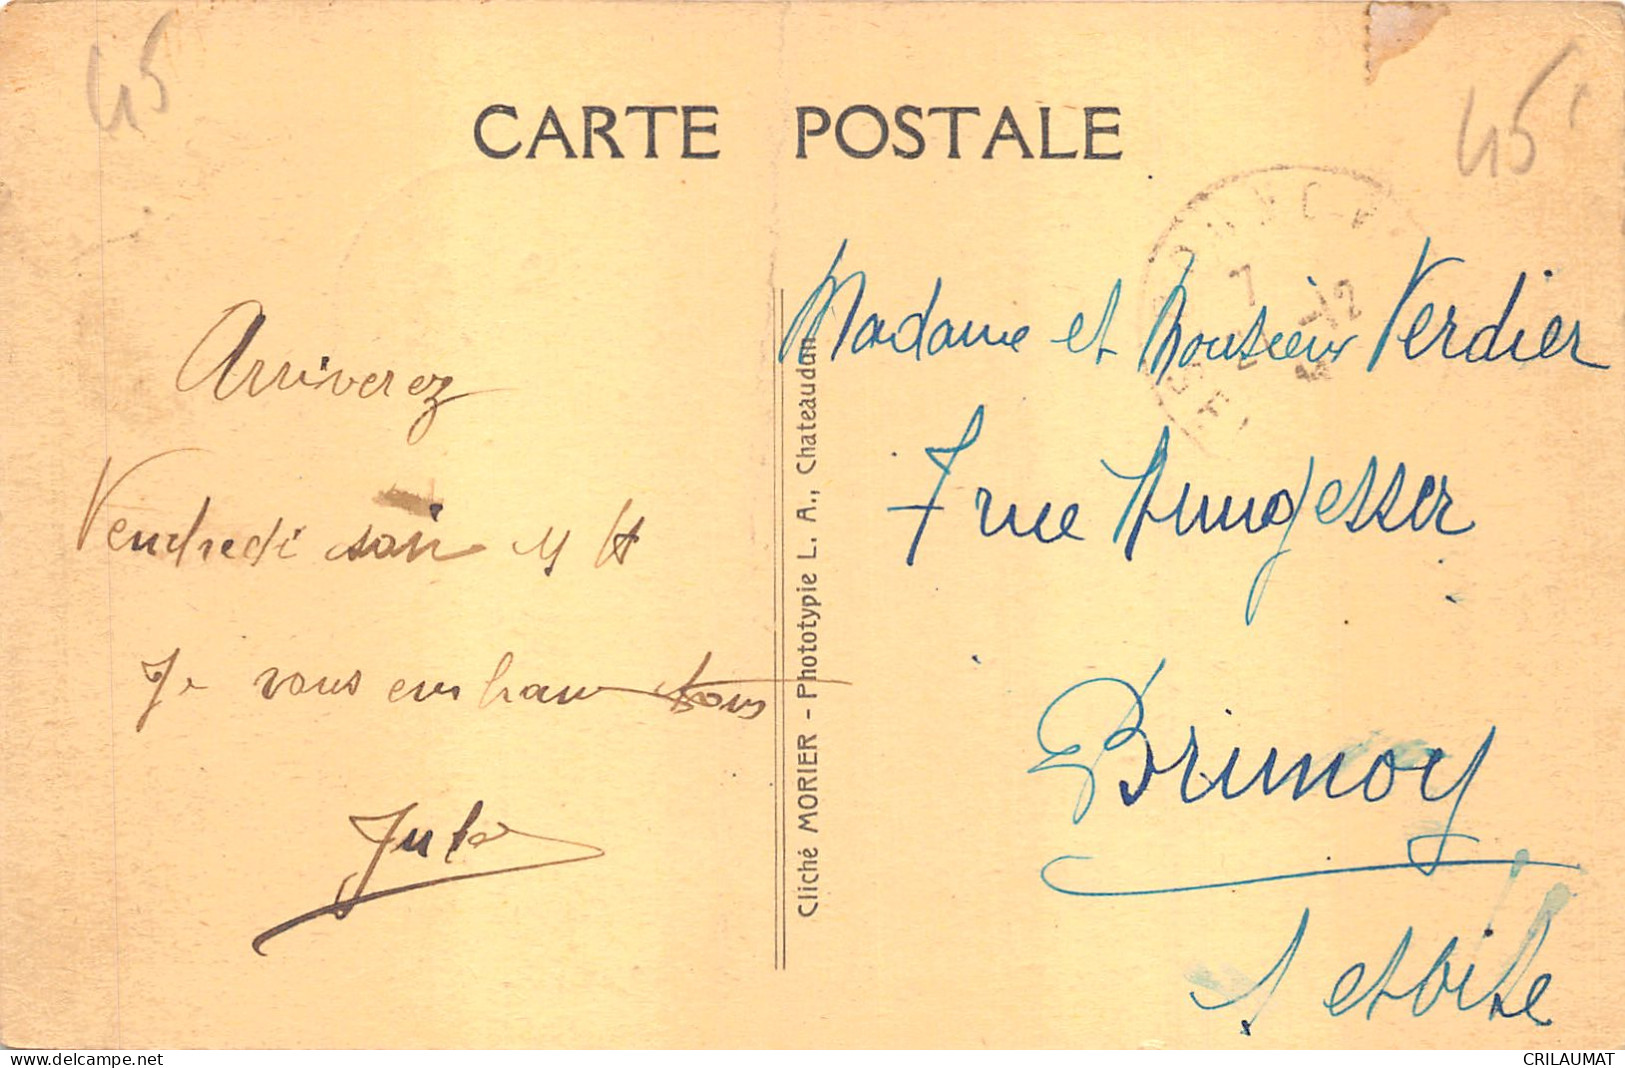 45
45
CARTE POSTALE
Arriverez
Vendredi soir
Je vous embrasse tous
Madame et Monsieur Verdier
7 rue Nungesser
Brunoy
S et Oise
Cliché MORIER - Phototypie L. A., Chateaudun
delcampe.net
CRILAUMAT